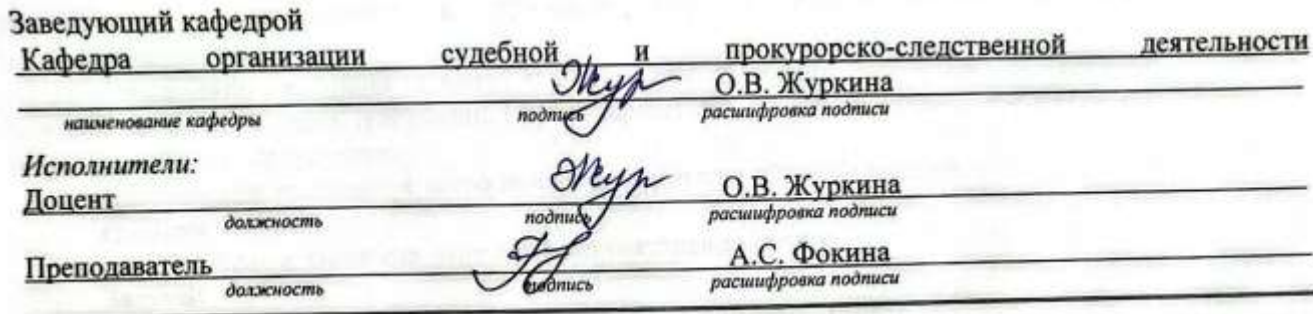 Заведующий кафедрой
Кафедра организации судебной и прокурорско-следственной деятельности
Жур О.В. Журкина
наименование кафедры подпись расшифровка подписи
Исполнители:
Доцент Жур О.В. Журкина
должность подпись расшифровка подписи
Преподаватель А.С. Фокина
должность подпись расшифровка подписи